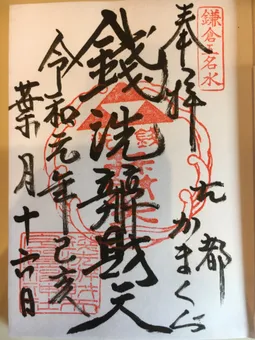 鎌倉五名水
奉拝
古都かまくら
銭洗辨財天
令和元年己亥
葉月十六日